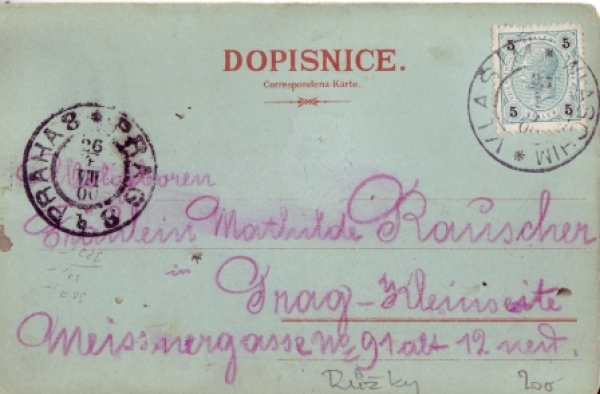 DOPISNICE.
Correspondenz-Karte.
5 5
5 5
VLAŠIM * WLASCHIM *
PRAHA 8 * PRAG 8
26
VIII
00
Fräulein Mathilde Rauscher
in
Prag-Kleinseite
Meissnergasse No 91 alt 12 neu.
Růžky 200